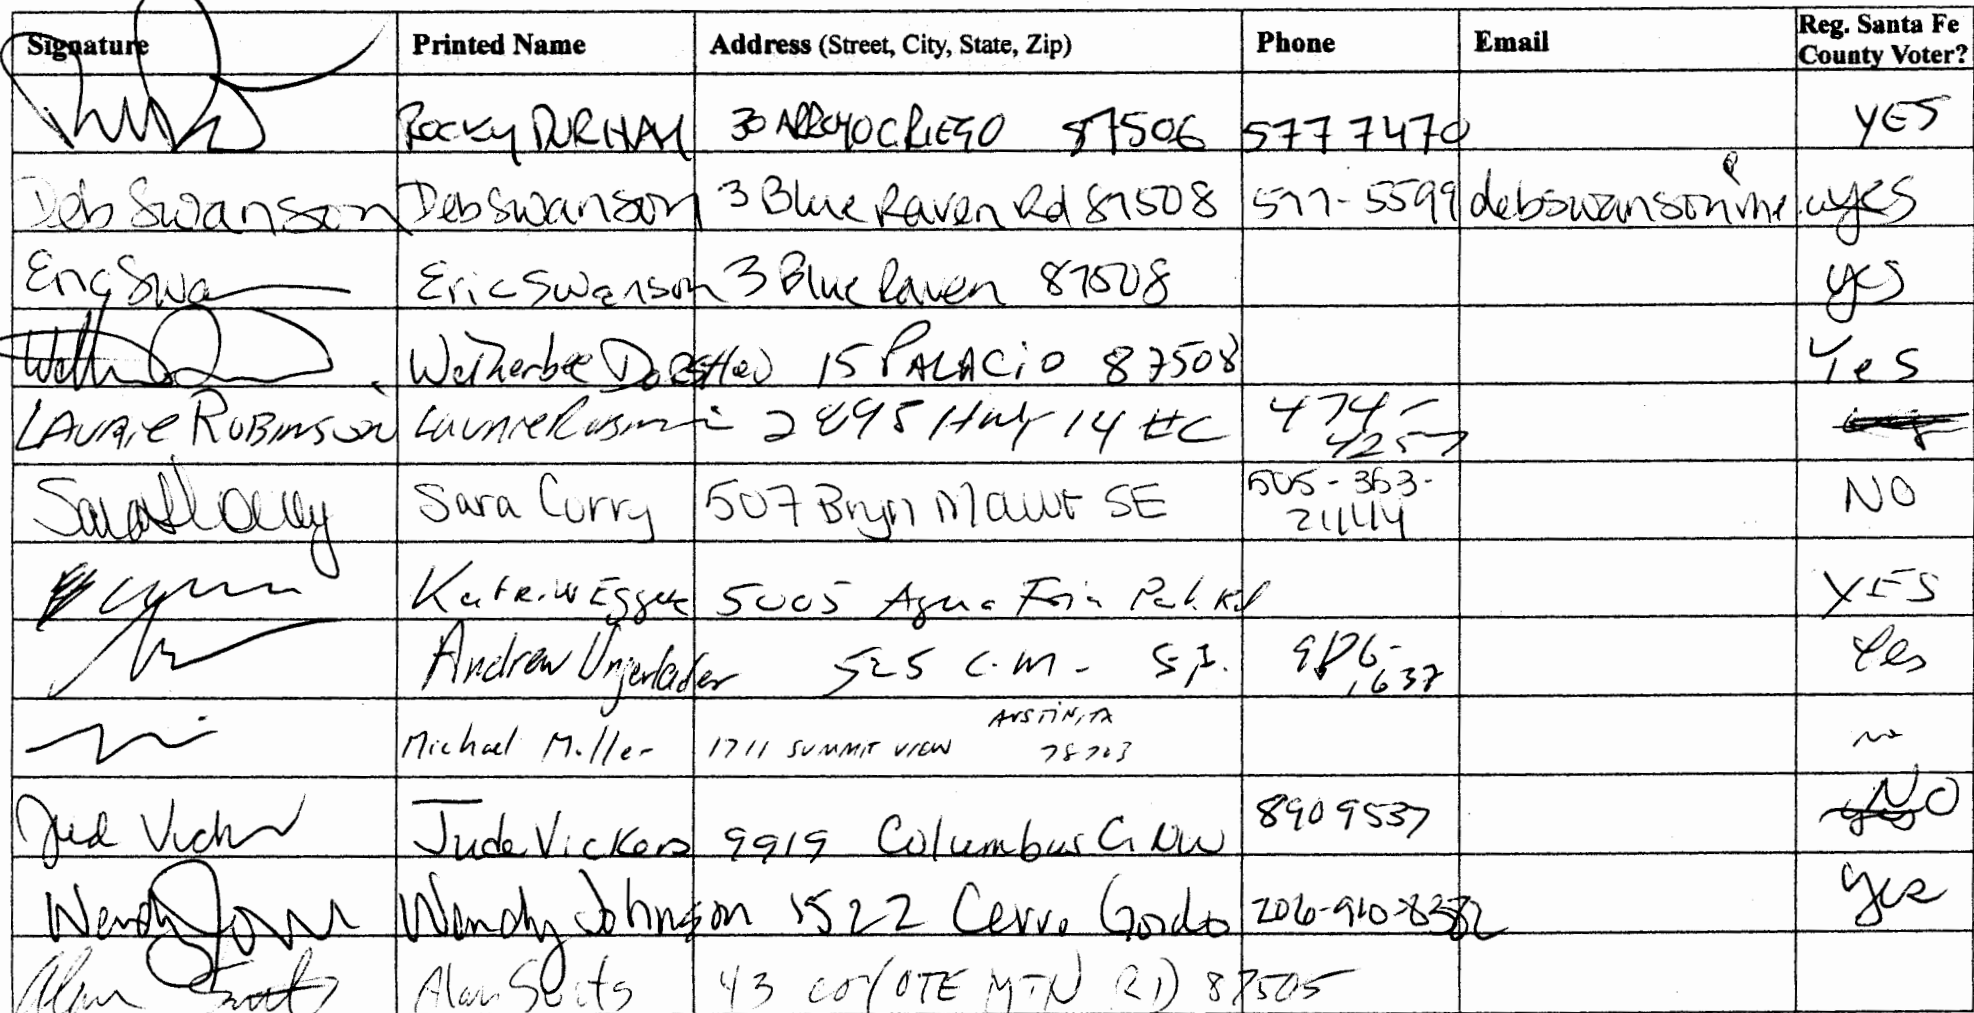 Signature Printed Name Address (Street, City, State, Zip) Phone Email Reg. Santa Fe County Voter?
ROCKY DURHAM 30 ARROYO GRIEGO 87506 577 7470 YES
Deb Swanson Deb Swanson 3 Blue Raven Rd 87508 577-5599 yes
Eric Swa Eric Swanson 3 Blue Raven 87508 yes
Wetherbee 15 PALACIO 87508 Yes
LAURIE ROBINSON Laurie 2895 Hwy 14 474-
4257
Sara Curry 507 Bryn Mawr SE 505-363- NO
21444
Katrin 5005 Agua Fria Park Rd YES
Andrew 525 C. M. S.F. Yes
Michael Miller 1711 SUMMIT VIEW AUSTIN, TX
78703 no
Jude Vickers 9919 Columbus NW 890 9537 NO
Wendy Wendy Johnson 1522 Cerro Gordo 206-910-8382 yes
Alan Alan 43 COYOTE MTN RD 87505